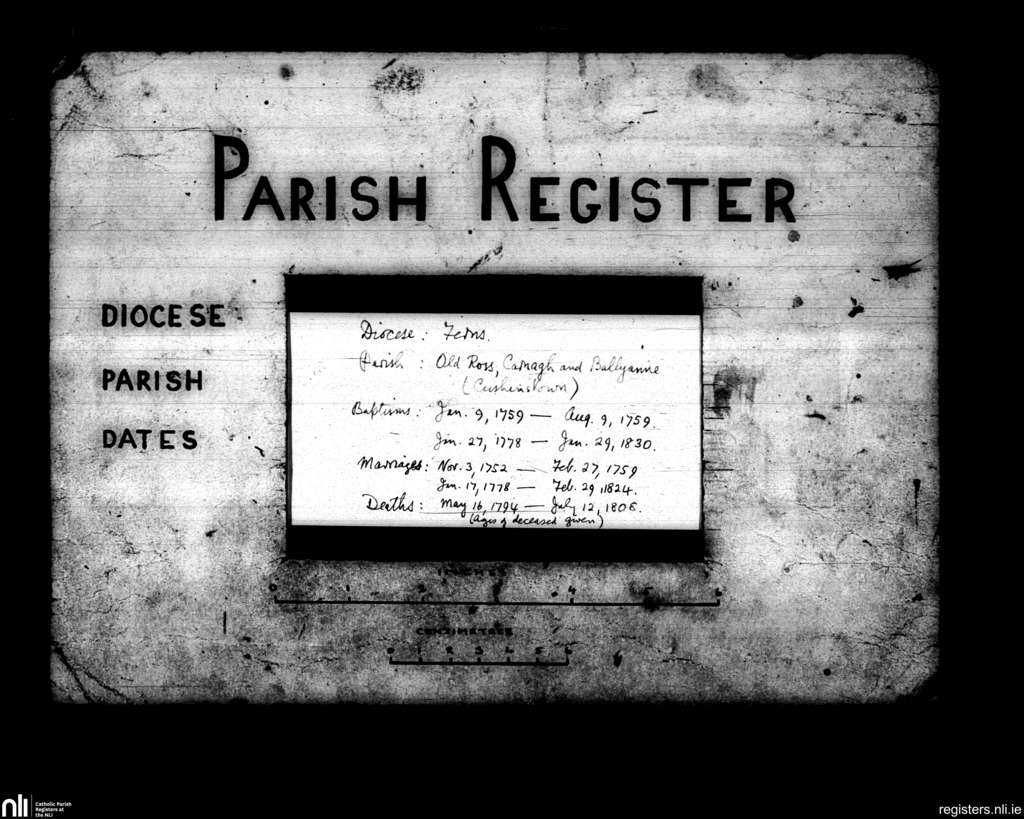 PARISH REGISTER
DIOCESE
PARISH
DATES
Diocese: Ferns.
Parish: Old Ross, Carnagh and Ballyanne
(Cushinstown)
Baptisms: Jan. 9, 1759 — Aug. 9, 1759.
Jan. 27, 1778 — Jan. 29, 1830.
Marriages: Nov. 3, 1752 — Feb. 27, 1759
Jan. 17, 1778 — Feb. 29, 1824.
Deaths: May 16, 1794 — July 12, 1808.
(ages of deceased given)
0 1 2 4 5 6
CENTIMETRES
0 1 2 3 4 5 6
nli
Catholic Parish
Registers at
the NLI
registers.nli.ie